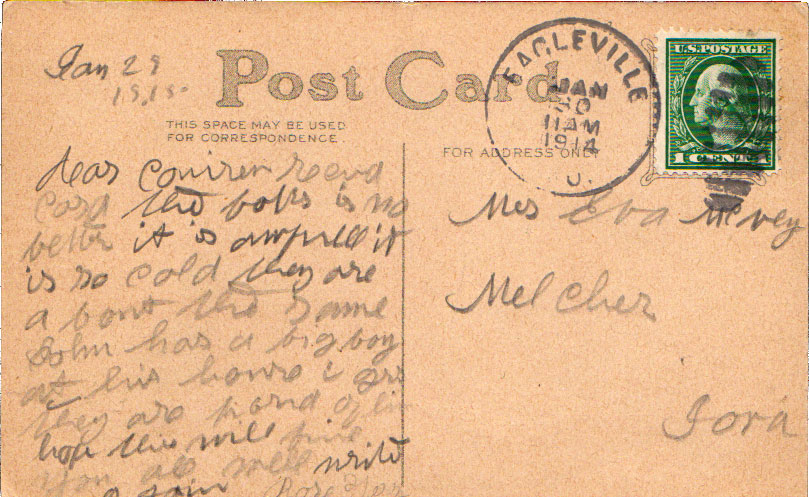 Jan 29
Post Card
THIS SPACE MAY BE USED
FOR CORRESPONDENCE.
FOR ADDRESS ONLY
EAGLEVILLE
JAN
30
11 AM
1914
O.
U.S. POSTAGE
1 CENT
dear
card the is no
better it is awfull it
is so cold they are
a bout the same
John has a big boy
at his house i
they are of
hope this will
you all well
write
Mrs Eva McVey
Melcher
Iora